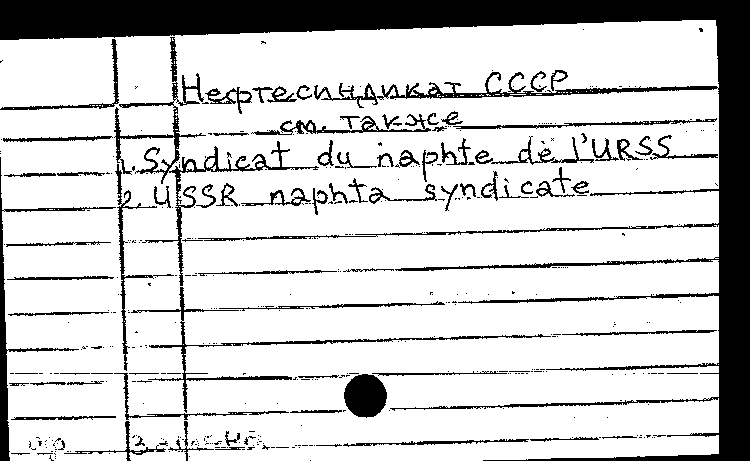 Нефтесиндикат СССР
см. также
1. Syndicat du naphte de l'URSS
2. USSR naphta syndicate